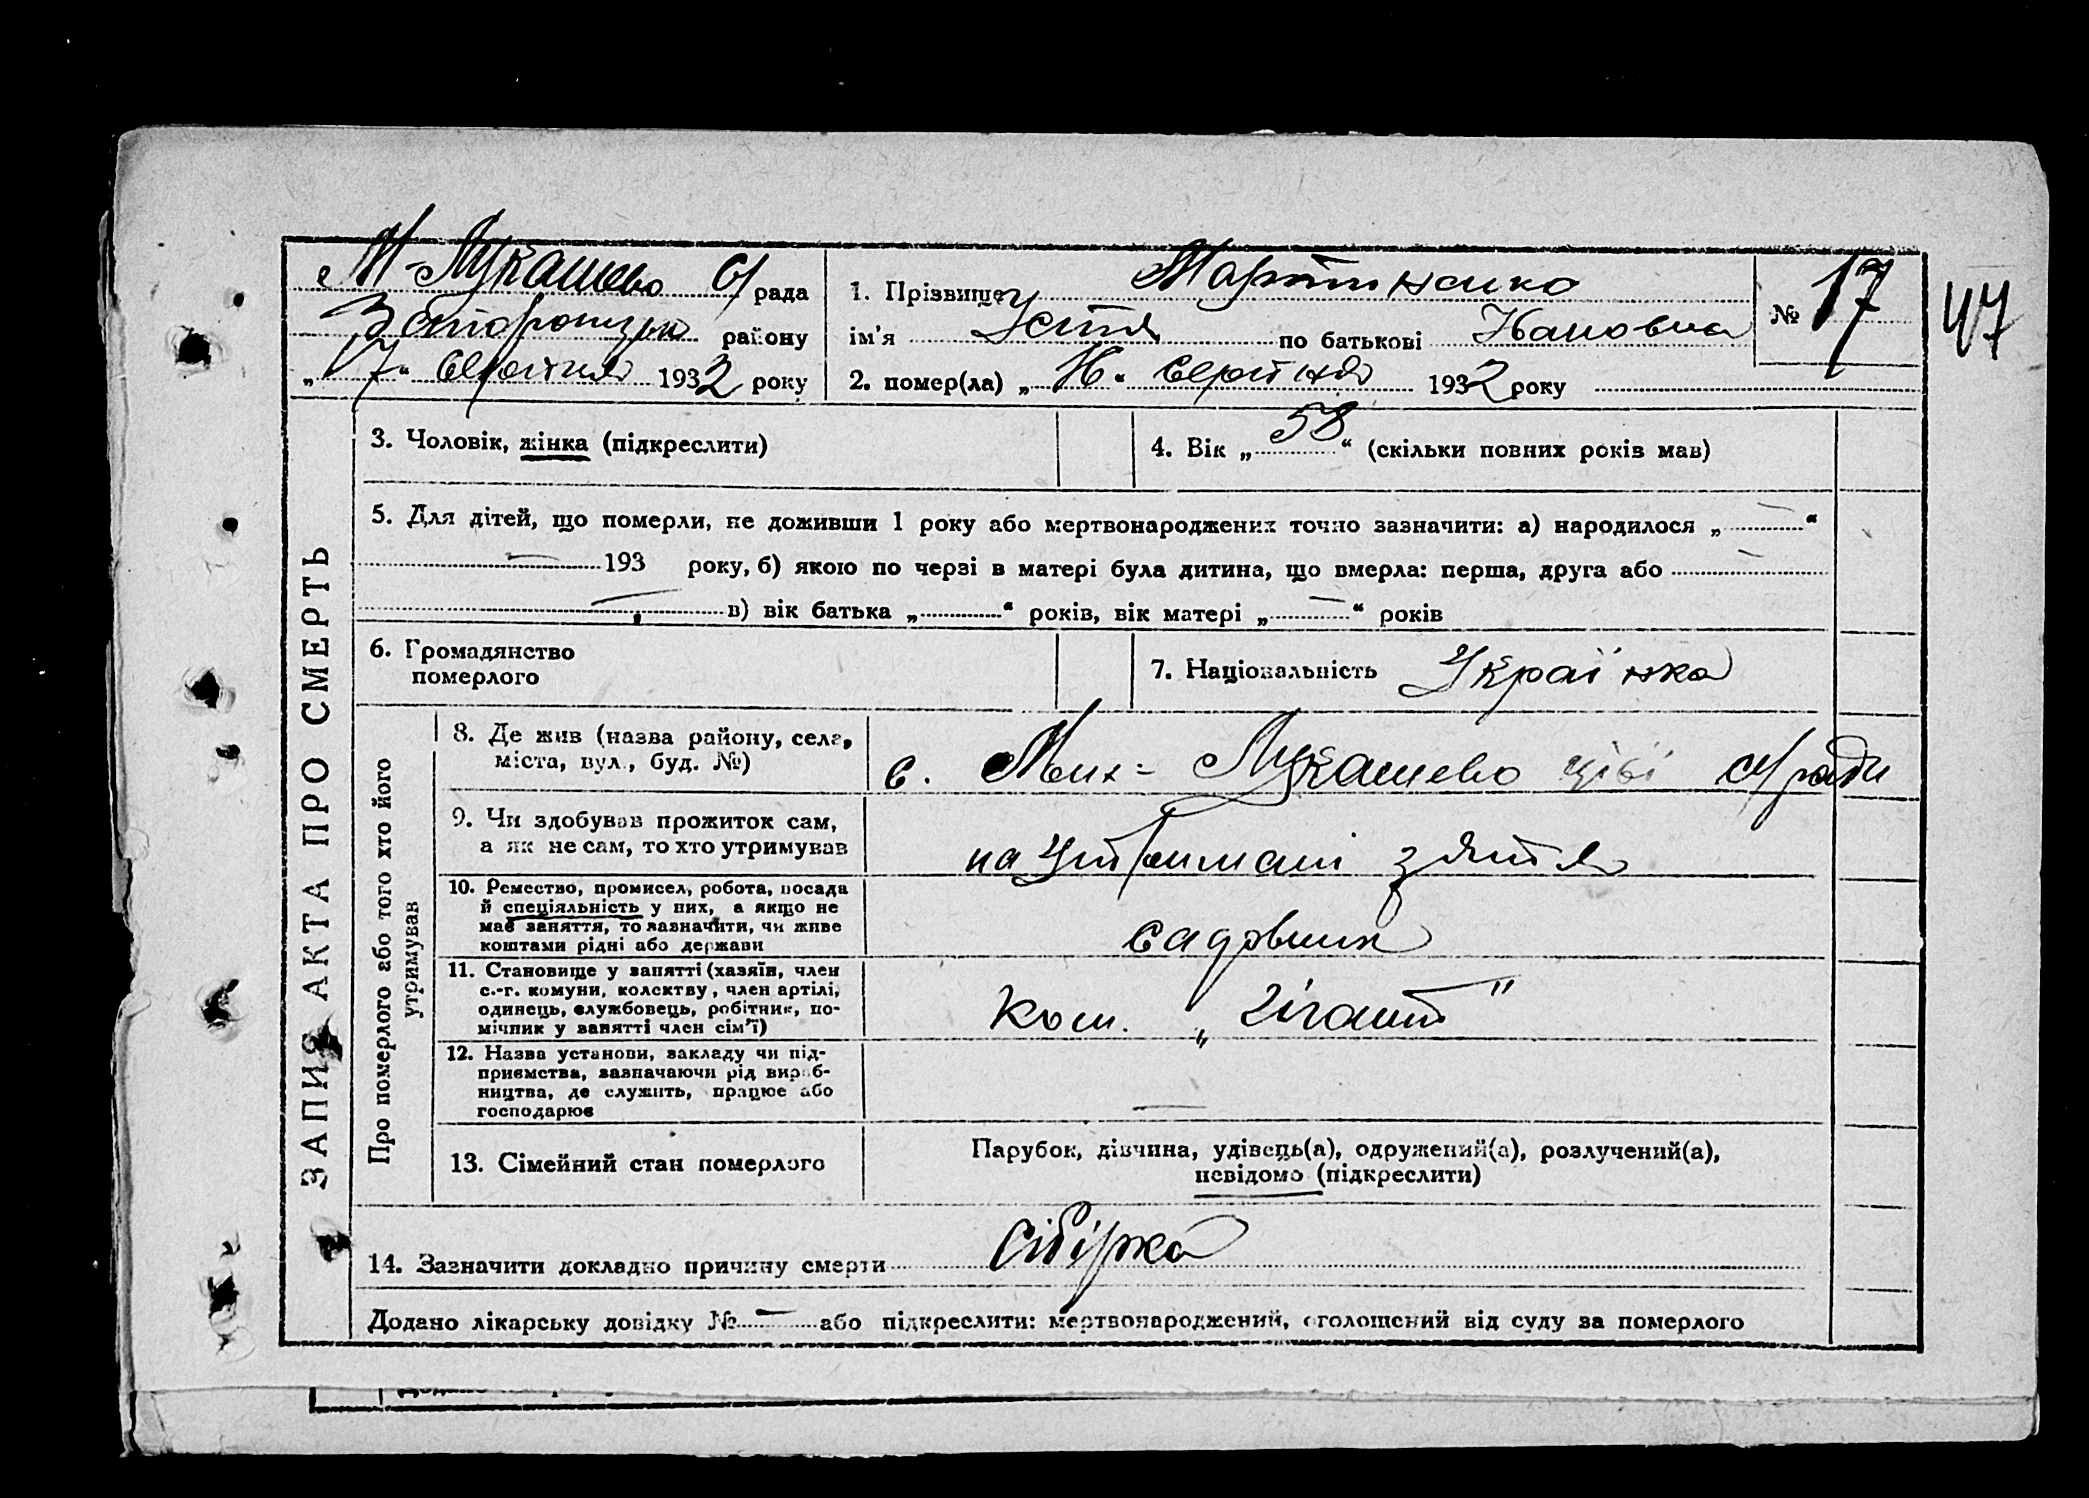 М-Лукашево с/рада
Запорізьк району
„17“ серпня 1932 року
1. Прізвище Мартиненко
ім'я Устя по батькові Івановна
2. помер(ла) „16“ серпня 1932 року
№ 17
47
ЗАПИС АКТА ПРО СМЕРТЬ
3. Чоловік, жінка (підкреслити)
4. Вік „58“ (скільки повних років мав)
5. Для дітей, що померли, не доживши 1 року або мертвонароджених точно зазначити: а) народилося „—“
— 193 року, б) якою по черзі в матері була дитина, що вмерла: перша, друга або —
— в) вік батька „ “ років, вік матері „—“ років
6. Громадянство
померлого
7. Національність Українка
Про померлого або того хто його
утримував
8. Де жив (назва району, села,
міста, вул., буд. №)
с. Мих- Лукашево цієї с/ради
9. Чи здобував прожиток сам,
а як не сам, то хто утримував
на утриманні зятя
10. Ремество, промисел, робота, посада
й спеціяльність у них, а якщо не
має заняття, то зазначити, чи живе
коштами рідні або держави
садовник
11. Становище у занятті (хазяїн, член
с.-г. комуни, колективу, член артілі,
одинець, службовець, робітник, по-
мічник у занятті член сім'ї)
Ком. „Гігант"
12. Назва установи, закладу чи під-
приємства, зазначаючи рід вироб-
ництва, де служить, працює або
господарює
—
13. Сімейний стан померлого
Парубок, дівчина, удівець(а), одружений(а), розлучений(а),
невідомо (підкреслити)
14. Зазначити докладно причину смерти сібірка
Додано лікарську довідку № — або підкреслити: мертвонароджений, оголошений від суду за померлого